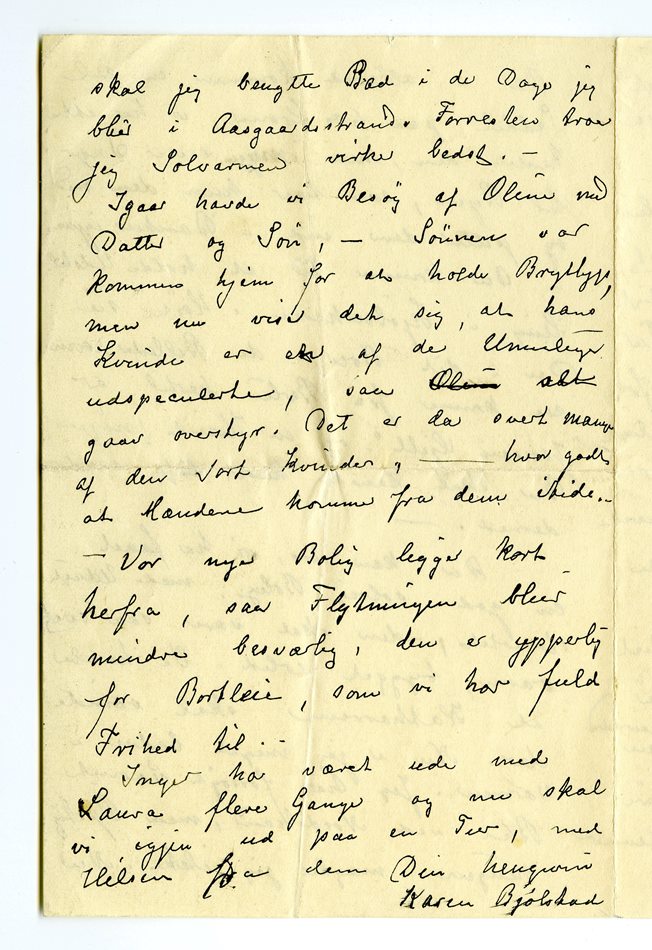 skal jeg benytte Bad i de Dage jeg
blir i Aasgaardsstrand. Forresten tror
jeg Solvarmen virker bedst. —
Igaar havde vi Besøg af Oline med
Datter og Søn, — Sønnen var
kommen hjem for at holde Bryllup,
men nu viser det sig, at hans
Kvinde er en af de
udspeculerte, saa alt
gaar overstyr. Det er da svært mange
af den Sort Kvinder, — hvor godt
at Mændene komme fra dem itide..
— Vor nye Bolig ligger kort
herfra, saa Flytningen blir
mindre besværlig, den er ypperlig
for Bortleie, som vi har fuld
Frihed til. —
Inger har været ude med
Laura flere Gange og nu skal
vi igjen ud paa en Tur, med
Hilsen fra dem Din hengivne
Karen Bjølstad